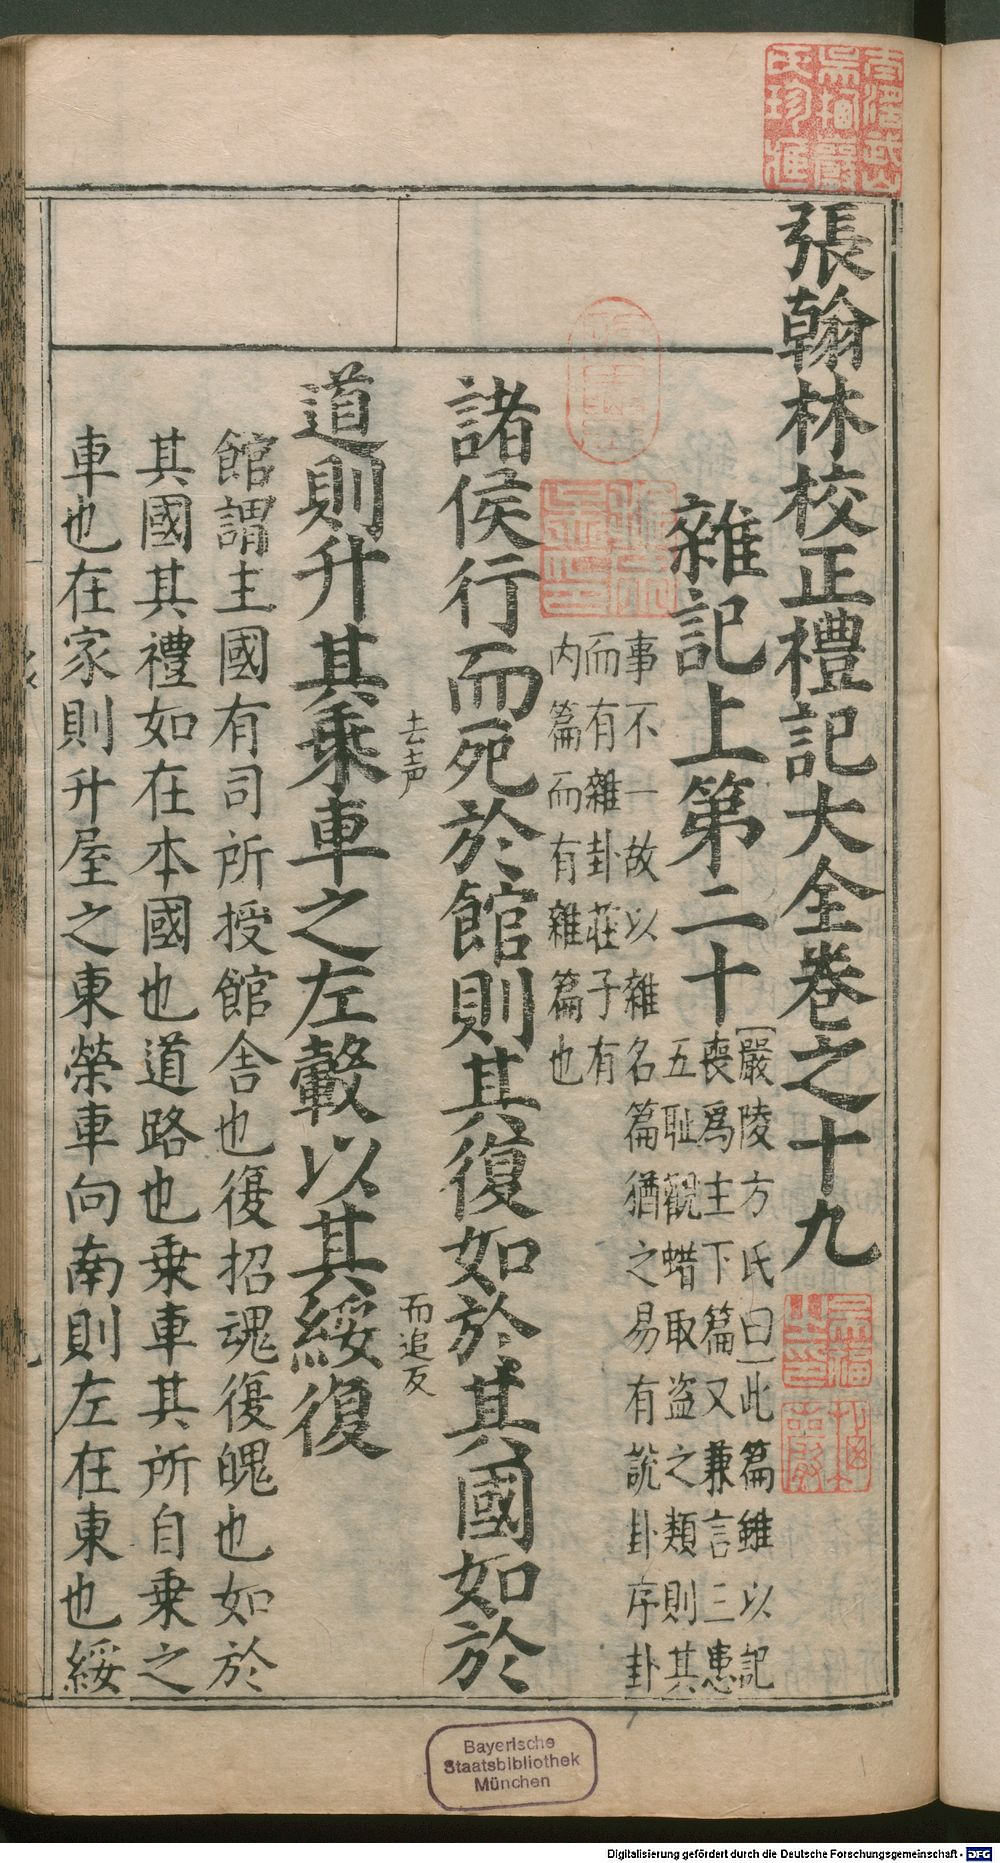 張翰林校正禮記大全卷之十九
雜記上第二十
【嚴陵方氏曰】此篇雖以記
喪爲主下篇又兼言三患
五耻觀蜡取盗之類則其
事不一故以雜名篇猶之易有說卦序卦
而有雜卦莊子有
内篇而有雜篇也
諸侯行而死於館則其復如於其國如於
道則升其乘車之左轂以其綏復
去声
而追反
館謂主國有司所授館舍也復招魂復魄也如於
其國其禮如在本國也道路也乘車其所自乘之
車也在家則升屋之東榮車向南則左在東也綏
Bayerische
Staatsbibliothek
München
Digitalisierung gefördert durch die Deutsche Forschungsgemeinschaft - DFG